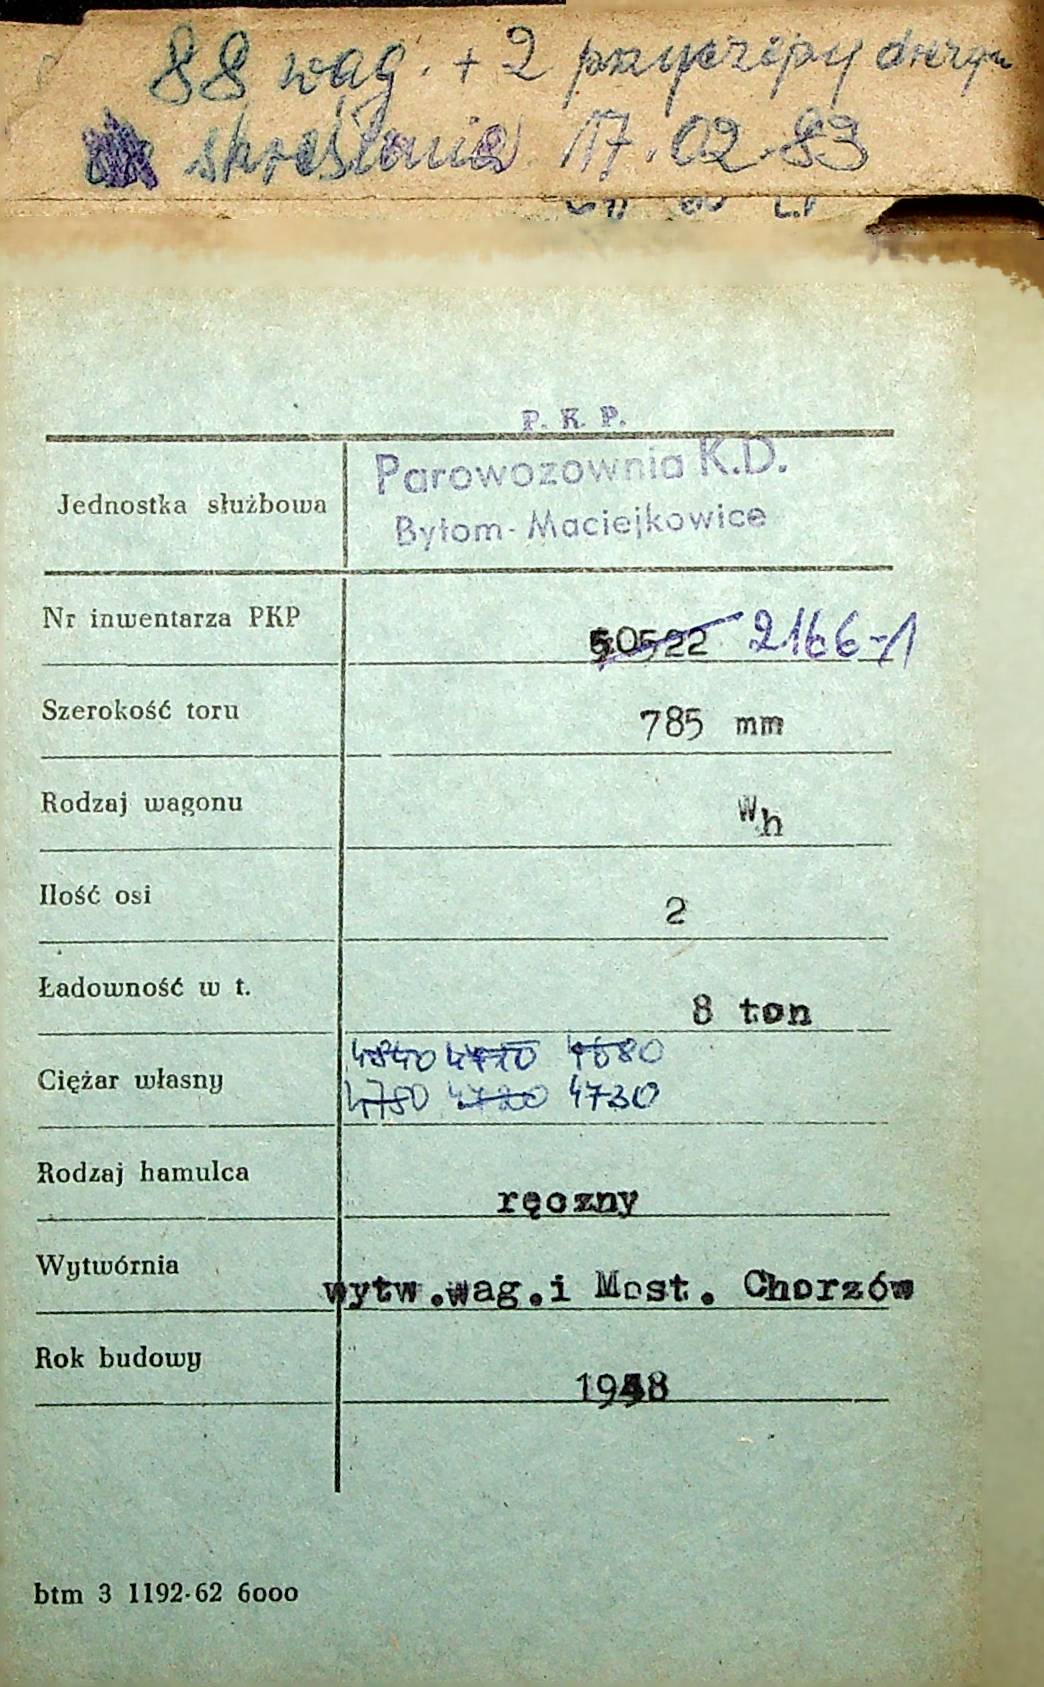 88 wag. + 2 przyczepy drezyn
skreślania 17.02.83
P. K. P.
Parowozownia K.D.
Bytom-Maciejkowice
Jednostka służbowa
Nr inwentarza PKP 50522 2166-1
Szerokość toru 785 mm
Rodzaj wagonu Wh
Ilość osi 2
Ładowność w t. 8 ton
Ciężar własny 4840 4680
4750 4720 4730
Rodzaj hamulca ręczny
Wytwórnia wytw.wag.i Most. Chorzów
Rok budowy 1948
btm 3 1192-62 6000